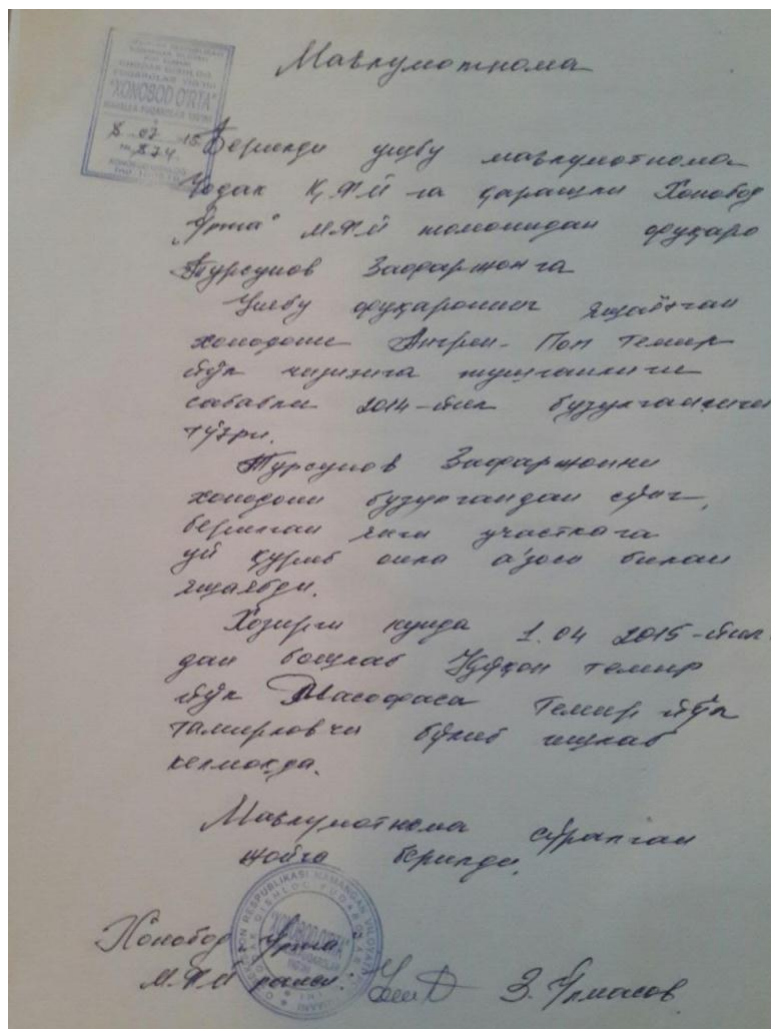 "XONOBOD O'RTA"
8 07 15
№ 874.
Маълумотнома
Берилди ушбу маълумотнома
Чодак Қ.Ф.Й га қарашли Хонобод
„Ўрта" М.Ф.Й томонидан фуқаро
Турсунов Зафаржонга
Ушбу фуқаронинг яшаётган
хонодони Ангрен - Поп Темир
йўл чизиғига тушганлиги
сабабли 2014-йил бузулганлиги
тўғри.
Турсунов Зафаржонни
хонодони бузулгандан сўнг,
берилган янги участкага
уй қуриб оила аъзоси билан
яшаябди.
Хозирги кунда 1.04 2015-йил
дан бошлаб Қўқон темир
йўл Масофаса Темир йўл
тамирловчи бўлиб ишлаб
келмоқда.
Маълумотнома сўралган
жойга берилди.
Хонобод Ўрта
М.Ф.Й раиси: З. Ўлмасов